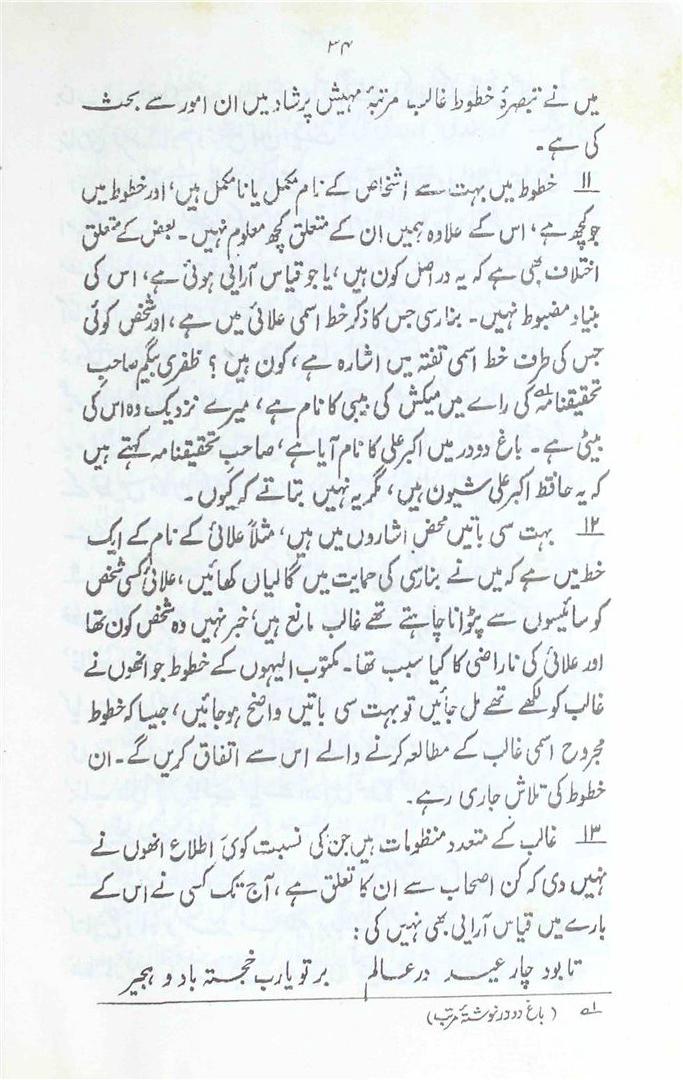 ۳۴
میں نے تبصرۂ خطوط غالب مرتبۂ مہیش پرشاد میں ان امور سے بحث
کی ہے۔
۱۱ خطوط میں بہت سے اشخاص کے نام مکمل یا نامکمل ہیں، اور خطوط میں
جو کچھ ہے، اس کے علاوہ ہمیں ان کے متعلق کچھ معلوم نہیں۔ بعض کے متعلق
اختلاف بھی ہے کہ یہ دراصل کون ہیں، یا جو قیاس آرائی ہوئی ہے، اس کی
بنیاد مضبوط نہیں۔ بنارسی جس کا ذکر خط اسمی علائی میں ہے، اور شخص کوئی
جس کی طرف خط اسمی تفتہ میں اشارہ ہے، کون ہیں؟ ظفری بیگم صاحبِ
تحقیقنامہ لے کی راے میں میکش کی بیبی کا نام ہے، میرے نزدیک وہ اس کی
بیٹی ہے۔ باغ دودر میں اکبر علی کا نام آیا ہے، صاحبِ تحقیقنامہ کہتے ہیں
کہ یہ حافظ اکبر علی شیون ہیں، مگر یہ نہیں بتاتے کہ کیوں۔
۱۲ بہت سی باتیں محض اشاروں میں ہیں، مثلاً علائی کے نام کے ایک
خط میں ہے کہ میں نے بنارسی کی حمایت میں گالیاں کھائیں، علائی کسی شخص
کو سائیسوں سے پٹوانا چاہتے تھے غالب مانع ہیں، خبر نہیں وہ شخص کون تھا
اور علائی کی ناراضی کا کیا سبب تھا۔ مکتوب الیہوں کے خطوط جو انھوں نے
غالب کو لکھے تھے مل جائیں تو بہت سی باتیں واضح ہو جائیں، جیسا کہ خطوط
مجروح اسمی غالب کے مطالعہ کرنے والے اس سے اتفاق کریں گے۔ ان
خطوط کی تلاش جاری رہے۔
۱۳ غالب کے متعدد منظومات ہیں جن کی نسبت کوئ اطلاع انھوں نے
نہیں دی کہ کن اصحاب سے ان کا تعلق ہے، آج تک کسی نے اس کے
بارے میں قیاس آرایی بھی نہیں کی:
تا بود چار عید در عالم بر تو یارب خجستہ باد و ہجیر
لے (باغ دودر نوشتۂ مرتب)